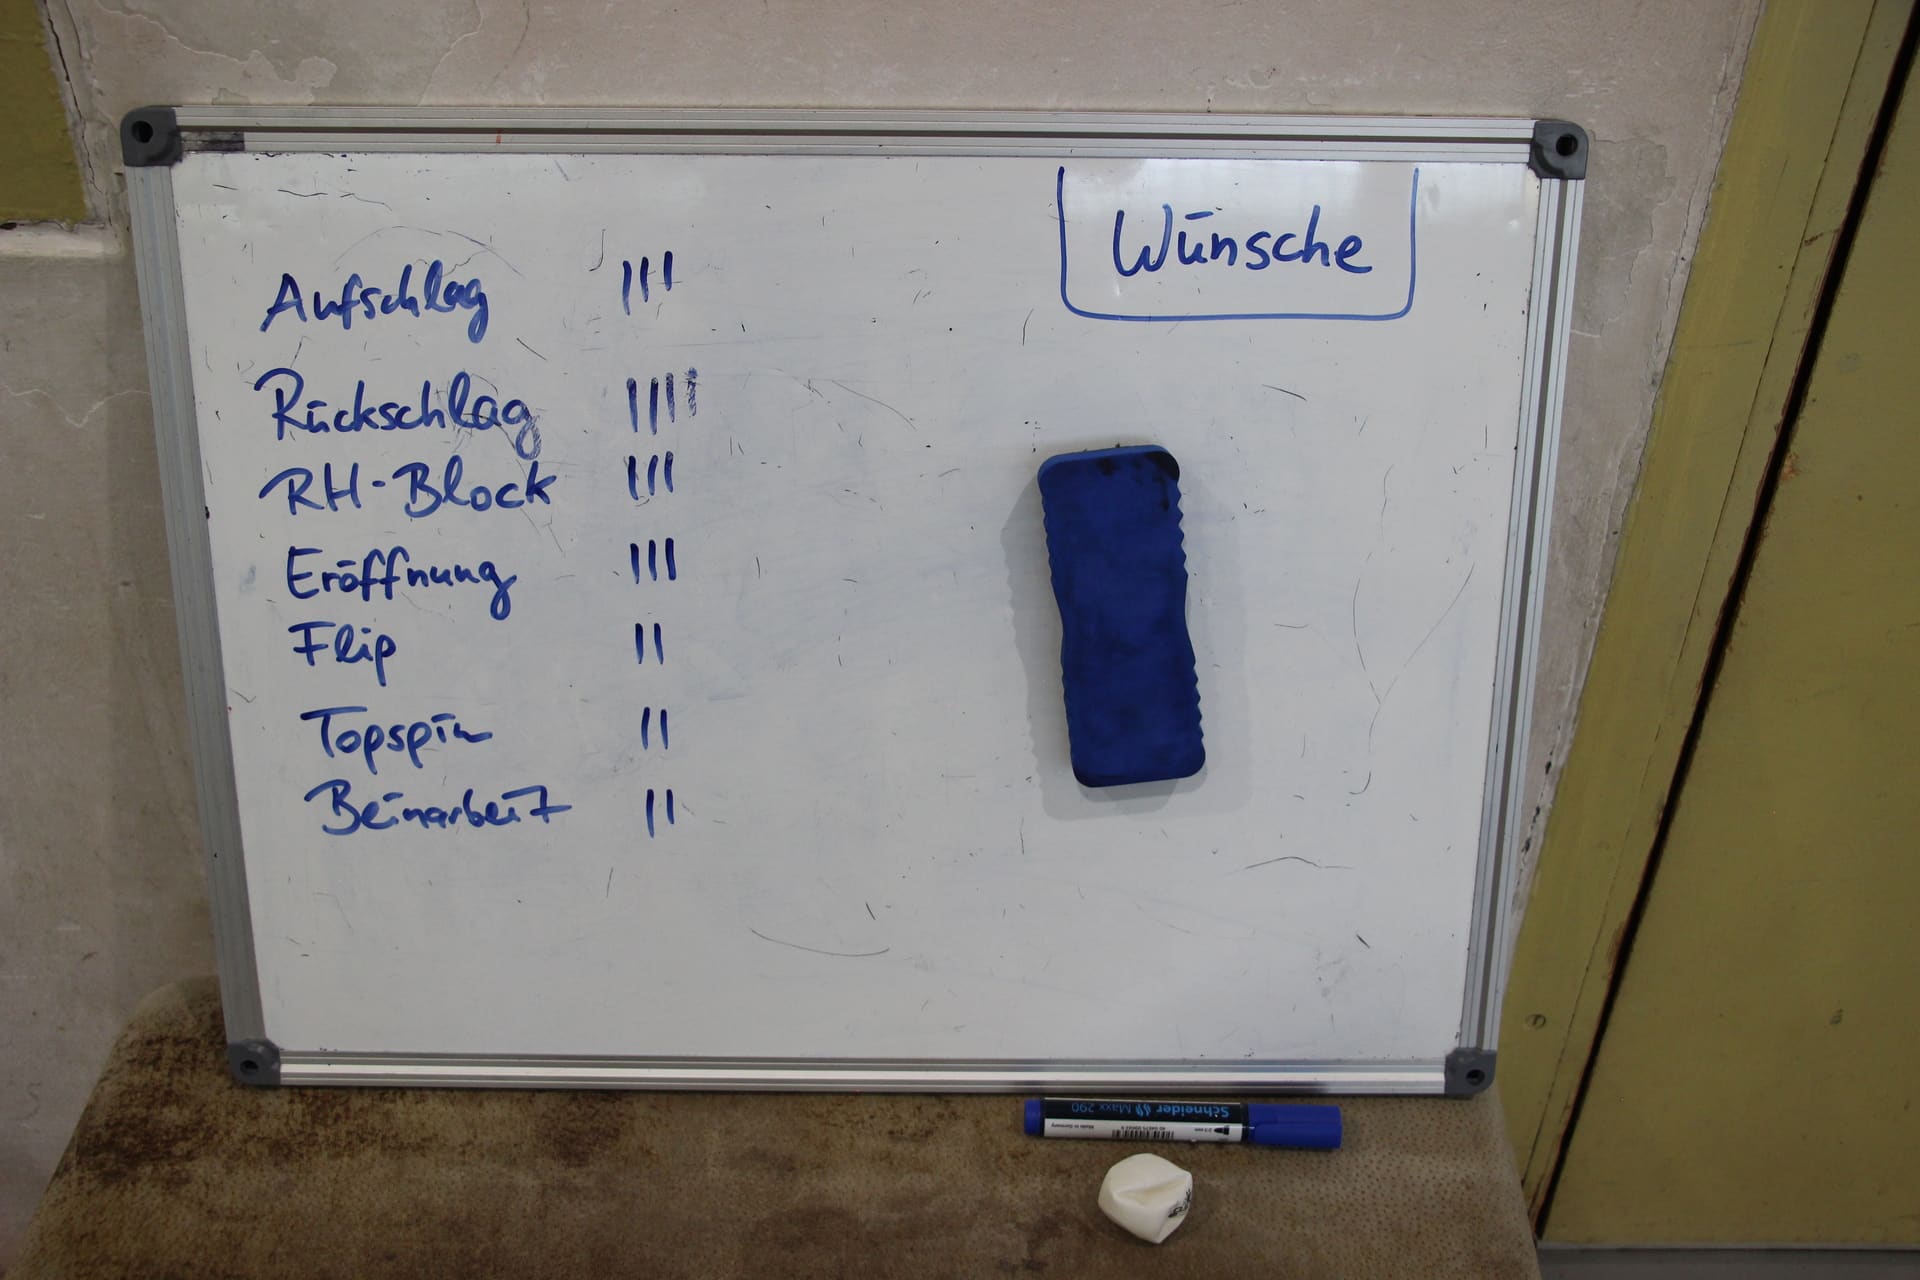 Wünsche
Aufschlag III
Rückschlag IIII
RH-Block III
Eröffnung III
Flip II
Topspin II
Beinarbeit II
Schneider Maxx 290
Made in Germany